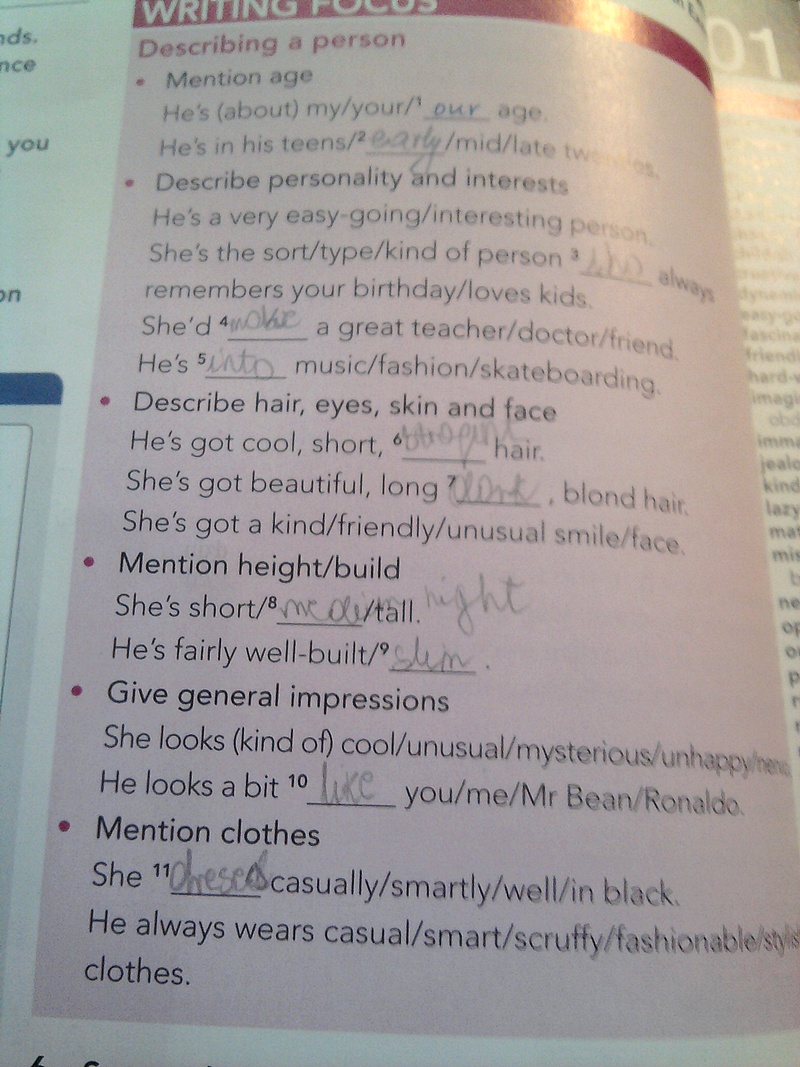 nds.
nce
you
on
WRITING FOCUS
01
Describing a person
• Mention age
He's (about) my/your/¹ our age.
He's in his teens/² early/mid/late twenties.
• Describe personality and interests
He's a very easy-going/interesting person.
She's the sort/type/kind of person ³ who always
remembers your birthday/loves kids.
She'd ⁴ make a great teacher/doctor/friend.
He's ⁵ into music/fashion/skateboarding.
• Describe hair, eyes, skin and face
He's got cool, short, ⁶ hair.
She's got beautiful, long ⁷ dark, blond hair.
She's got a kind/friendly/unusual smile/face.
• Mention height/build
She's short/⁸ /tall. hight
He's fairly well-built/⁹ slim.
• Give general impressions
She looks (kind of) cool/unusual/mysterious/unhappy/
He looks a bit ¹⁰ like you/me/Mr Bean/Ronaldo.
• Mention clothes
She ¹¹ casually/smartly/well/in black.
He always wears casual/smart/scruffy/fashionable/stylis
clothes.
easy-go
fascina
friendl
hard-w
imagi
imma
jealo
kind
lazy
mat
mis
ne
op